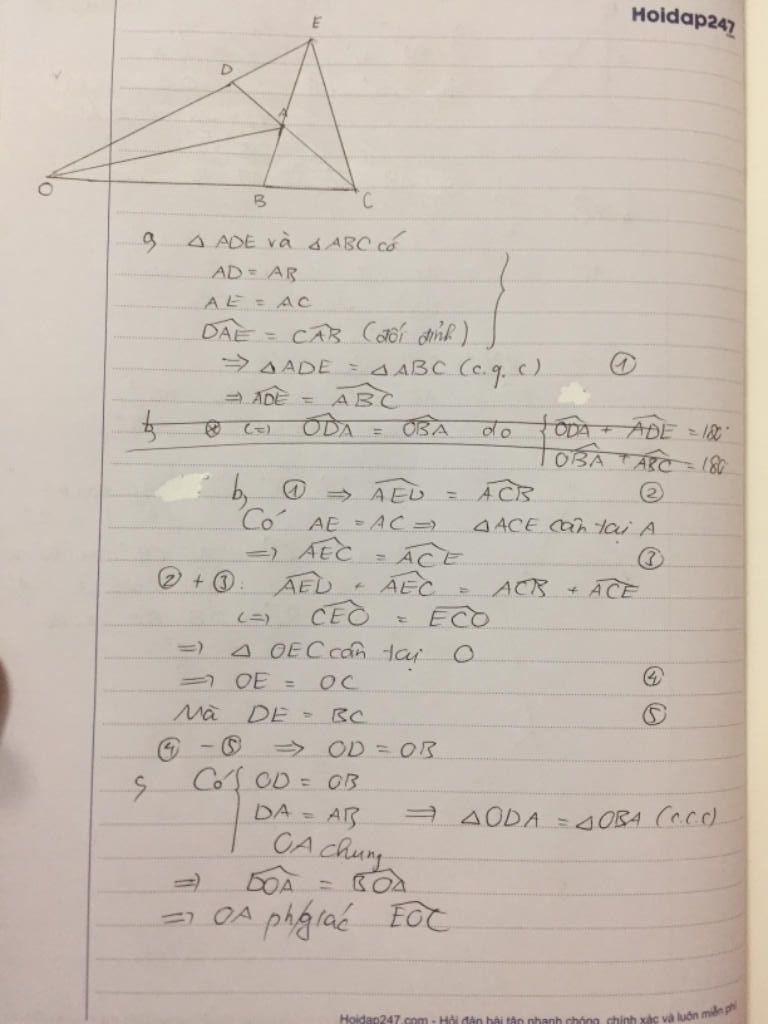 Hoidap247
E
D
A
O
B
C
a, △ ADE và △ ABC có
AD = AB
AE = AC
\widehat{DAE} = \widehat{CAB} (đối đỉnh)
=> △ ADE = △ ABC (c.g.c) ①
=> \widehat{ADE} = \widehat{ABC}
b, ⊗ <=> \widehat{ODA} = \widehat{OBA} do { \widehat{ODA} + \widehat{ADE} = 180°
\widehat{OBA} + \widehat{ABC} = 180
b, ① => \widehat{AED} = \widehat{ACB} ②
Có AE = AC => △ ACE cân tại A
=> \widehat{AEC} = \widehat{ACE} ③
② + ③: \widehat{AED} + \widehat{AEC} = ACB + \widehat{ACE}
<=> \widehat{CEO} = \widehat{ECO}
=> △ OEC cân tại O
=> OE = OC ④
Mà DE = BC ⑤
④ - ⑤ => OD = OB
c, Có { OD = OB
DA = AB => △ODA = △OBA (c.c.c)
OA chung
=> \widehat{DOA} = \widehat{BOA}
=> OA ph/giác \widehat{EOC}
Hoidap247.com - Hỏi đáp bài tập nhanh chóng, chính xác và luôn miễn phí